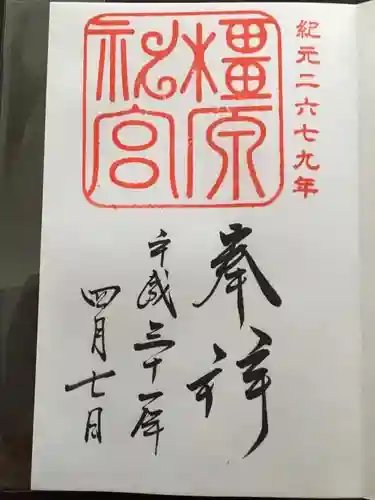 紀元二六七九年
橿原
神宮
奉拝
平成三十一年
四月七日